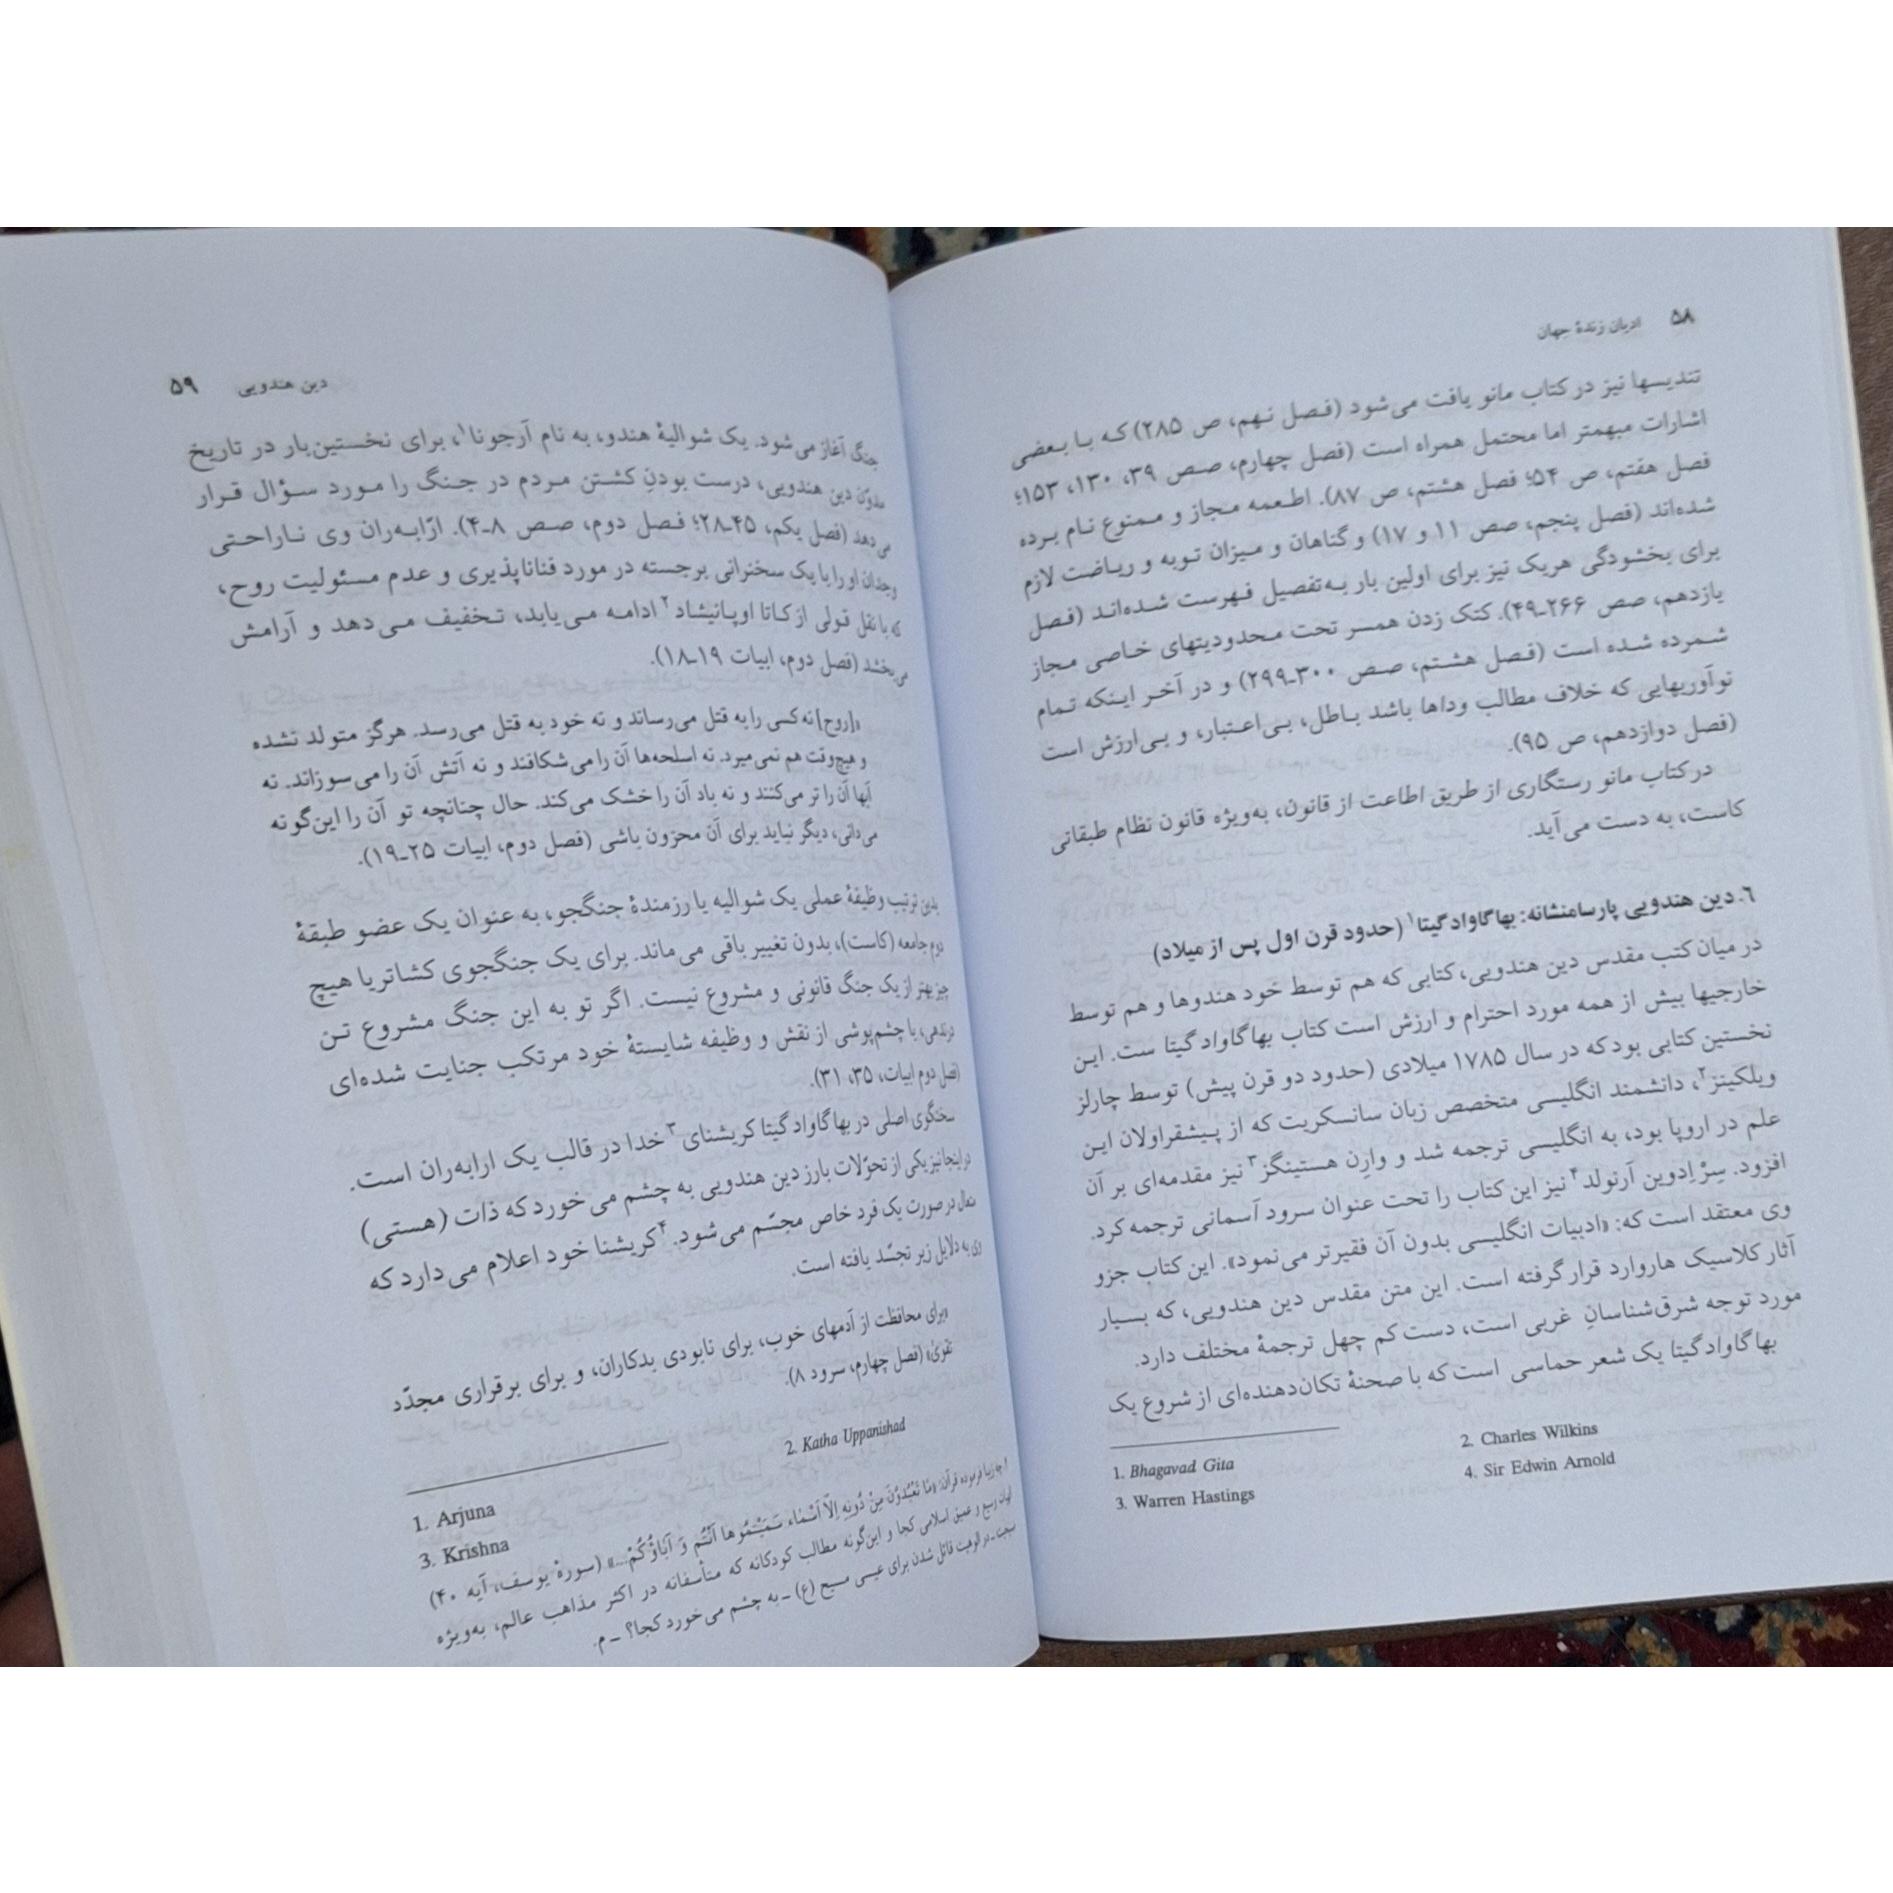 ۵۸ ادیان زندهٔ جهان
تندیسها نیز در کتاب مانو یافت می‌شود (فصل نهم، ص ۲۸۵) که با بعضی
اشارات مبهمتر اما محتمل همراه است (فصل چهارم، صص ۳۹، ۱۳۰، ۱۵۳؛
فصل هفتم، ص ۵۴؛ فصل هشتم، ص ۸۷). اطعمه مجاز و ممنوع نام برده
شده‌اند (فصل پنجم، صص ۱۱ و ۱۷) و گناهان و میزان توبه و ریاضت لازم
برای بخشودگی هریک نیز برای اولین بار به‌تفصیل فهرست شده‌اند (فصل
یازدهم، صص ۲۶۶ـ۴۹). کتک زدن همسر تحت محدودیتهای خاصی مجاز
شمرده شده است (فصل هشتم، صص ۳۰۰ـ۲۹۹) و در آخر اینکه تمام
نوآوریهایی که خلاف مطالب وداها باشد باطل، بی‌اعتبار، و بی‌ارزش است
(فصل دوازدهم، ص ۹۵).
در کتاب مانو رستگاری از طریق اطاعت از قانون، به‌ویژه قانون نظام طبقاتی
کاست، به دست می‌آید.
۶. دین هندویی پارسامنشانه: بهاگاوادگیتا۱ (حدود قرن اول پس از میلاد)
در میان کتب مقدس دین هندویی، کتابی که هم توسط خود هندوها و هم توسط
خارجیها بیش از همه مورد احترام و ارزش است کتاب بهاگاوادگیتا ست. این
نخستین کتابی بود که در سال ۱۷۸۵ میلادی (حدود دو قرن پیش) توسط چارلز
ویلکینز۲، دانشمند انگلیسی متخصص زبان سانسکریت که از پیشقراولان این
علم در اروپا بود، به انگلیسی ترجمه شد و وارِن هستینگز۳ نیز مقدمه‌ای بر آن
افزود. سِرْ اِدوین آرنولد۴ نیز این کتاب را تحت عنوان سرود آسمانی ترجمه کرد.
وی معتقد است که: «ادبیات انگلیسی بدون آن فقیرتر می‌نمود». این کتاب جزو
آثار کلاسیک هاروارد قرار گرفته است. این متن مقدس دین هندویی، که بسیار
مورد توجه شرق‌شناسانِ غربی است، دست کم چهل ترجمهٔ مختلف دارد.
بهاگاوادگیتا یک شعر حماسی است که با صحنهٔ تکان‌دهنده‌ای از شروع یک
1. Bhagavad Gita 2. Charles Wilkins
3. Warren Hastings 4. Sir Edwin Arnold
دین هندویی ۵۹
جنگ آغاز می‌شود. یک شوالیهٔ هندو، به نام آرجونا۱، برای نخستین‌بار در تاریخ
مدوّن دین هندویی، درست بودنِ کشتن مردم در جنگ را مورد سؤال قرار
می‌دهد (فصل یکم، ۴۵ـ۲۸؛ فصل دوم، صص ۸ـ۴). ارّابه‌ران وی ناراحتی
وجدان او را با یک سخنرانی برجسته در مورد فناناپذیری و عدم مسئولیت روح،
که با نقل قولی از کاتا اوپانیشاد۲ ادامه می‌یابد، تخفیف می‌دهد و آرامش
می‌بخشد (فصل دوم، ابیات ۱۹ـ۱۸).
«[روح] نه کسی را به قتل می‌رساند و نه خود به قتل می‌رسد. هرگز متولد نشده
و هیچ‌وقت هم نمی‌میرد. نه اسلحه‌ها آن را می‌شکافند و نه آتش آن را می‌سوزاند. نه
آبها آن را تر می‌کنند و نه باد آن را خشک می‌کند. حال چنانچه تو آن را این‌گونه
می‌دانی، دیگر نباید برای آن محزون باشی (فصل دوم، ابیات ۲۵ـ۱۹).
بدین ترتیب وظیفهٔ عملی یک شوالیه یا رزمندهٔ جنگجو، به عنوان یک عضو طبقهٔ
دوم جامعه (کاست)، بدون تغییر باقی می‌ماند. برای یک جنگجوی کشاتریا هیچ
چیز بهتر از یک جنگ قانونی و مشروع نیست. اگر تو به این جنگ مشروع تن
درندهی، با چشم‌پوشی از نقش و وظیفه شایستهٔ خود مرتکب جنایت شده‌ای
(فصل دوم ابیات، ۳۵، ۳۱).
سخنگوی اصلی در بهاگاوادگیتا کریشنای۳ خدا در قالب یک ارابه‌ران است.
در اینجا نیز یکی از تحوّلات بارز دین هندویی به چشم می‌خورد که ذات (هستی)
متعال در صورت یک فرد خاص مجسّم می‌شود.۴ کریشنا خود اعلام می‌دارد که
وی به دلایل زیر تجسّد یافته است.
«برای محافظت از آدمهای خوب، برای نابودی بدکاران، و برای برقراری مجدّد
تقوی» (فصل چهارم، سرود ۸).
1. Arjuna 2. Katha Uppanishad
3. Krishna
چه زیبا فرموده قرآن: «مَا تَعْبُدُونَ مِنْ دُونِهِ اِلّا اَسْمٰاء سَمَّیْتُمُوها اَنْتُم وَ آباؤُکُمْ...» (سورهٔ یوسف، آیه ۴۰)
الهیات وسیع و عمیق اسلامی کجا و این‌گونه مطالب کودکانه که متأسفانه در اکثر مذاهب عالم، به‌ویژه
مسیحیت ـ در الوهیت قائل شدن برای عیسی مسیح (ع) ـ به چشم می‌خورد کجا؟ ـ م.